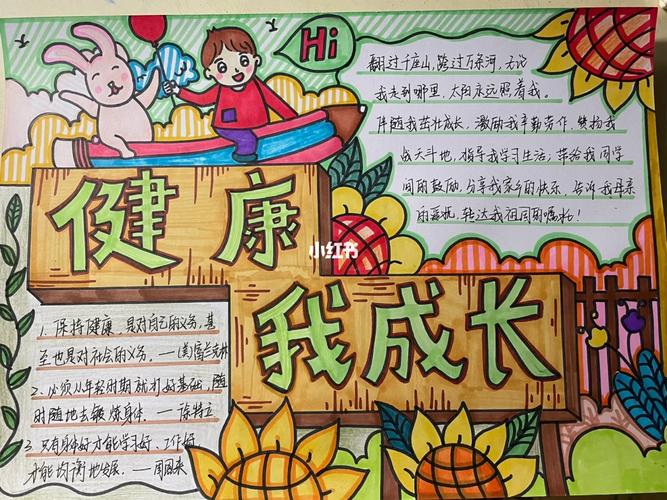 Hi
翻过千座山,跨过万条河,无论
我走到哪里,太阳永远照着我。
伴随我茁壮成长,激励我辛勤劳作,赞扬我
战天斗地,指导我学习生活,带给我同学
间的鼓励,分享我家乡的快乐,告诉我母亲
的爱抚,转达我祖国的嘱托!
健康
小红书
我成长
1. 保持健康,是对自己的义务,甚
至也是对社会的义务。——(美)富兰克林
2. 必须从年轻时期就打好基础,随
时随地去锻炼身体。——徐特立
3. 只有身体好才能学习好、工作好
才能均衡地发展。——周恩来